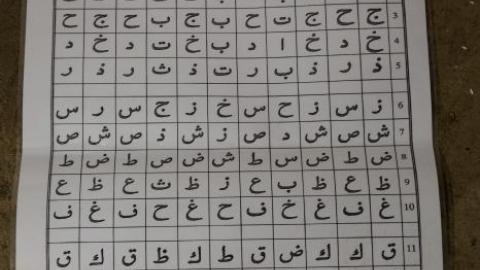 3 ج ح ج ت ح ب ج ب ح ج ح
4 خ د خ ا د ب خ ت د خ د
5 ذ ر ذ ب ر ت ذ ث ر ذ ر
6 ز س ز ح س خ ز ج س ر س
7 ش ص ش د ص ز ش ذ ص ش ص
8 ض ط ض س ط ش ض ص ط ض ط
9 ظ ع ظ ب ع ز ظ ث ع ظ ع
10 غ ف غ خ ف ح غ ح ف غ ف
11 ق ك ك ض ق ط ك ظ ق ك ق